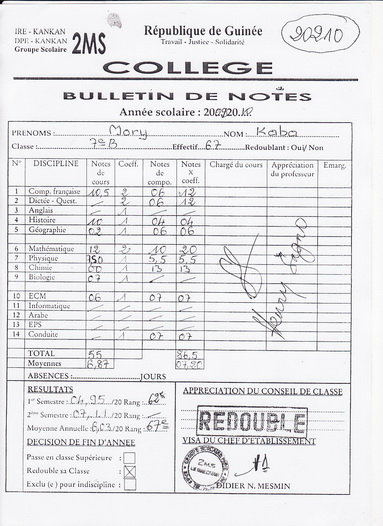 IRE - KANKAN
DPE - KANKAN
Groupe Scolaire 2MS
République de Guinée
Travail - Justice - Solidarité
20210
COLLEGE
BULLETIN DE NOTES
Année scolaire : 20
PRENOMS : Mory NOM : Kaba
Classe : 7e B Effectif 67 Redoublant : Oui/ Non
N° DISCIPLINE Notes de cours Coeff. Notes de compo. Notes X coeff. Chargé du cours Appréciation du professeur Emarg.
1 Comp. française 10,5 2 06 12
2 Dictée - Quest. 2 06 12
3 Anglais 1
4 Histoire 10 1 04 04
5 Géographie 02 1 06 06
6 Mathématique 12 2 10 20
7 Physique 1 5,5 5,5
8 Chimie 00 1 13 13
9 Biologie 07 1
10 ECM 06 1 07 07
11 Informatique
12 Arabe
13 EPS
14 Conduite 1 07 07
TOTAL 55 86,5
Moyennes 6,87 07,20
ABSENCES : JOURS
RESULTATS
1er Semestre : 04,95 /20 Rang : 62e
2ème Semestre : 07,11 /20 Rang :
Moyenne Annuelle : 6,03 /20 Rang : 67e
DECISION DE FIN D'ANNEE
Passe en classe Supérieure :
Redouble sa Classe :
Exclu (e) pour indiscipline :
APPRECIATION DU CONSEIL DE CLASSE
REDOUBLE
VISA DU CHEF D'ETABLISSEMENT
2MS
DIDIER N. MESMIN